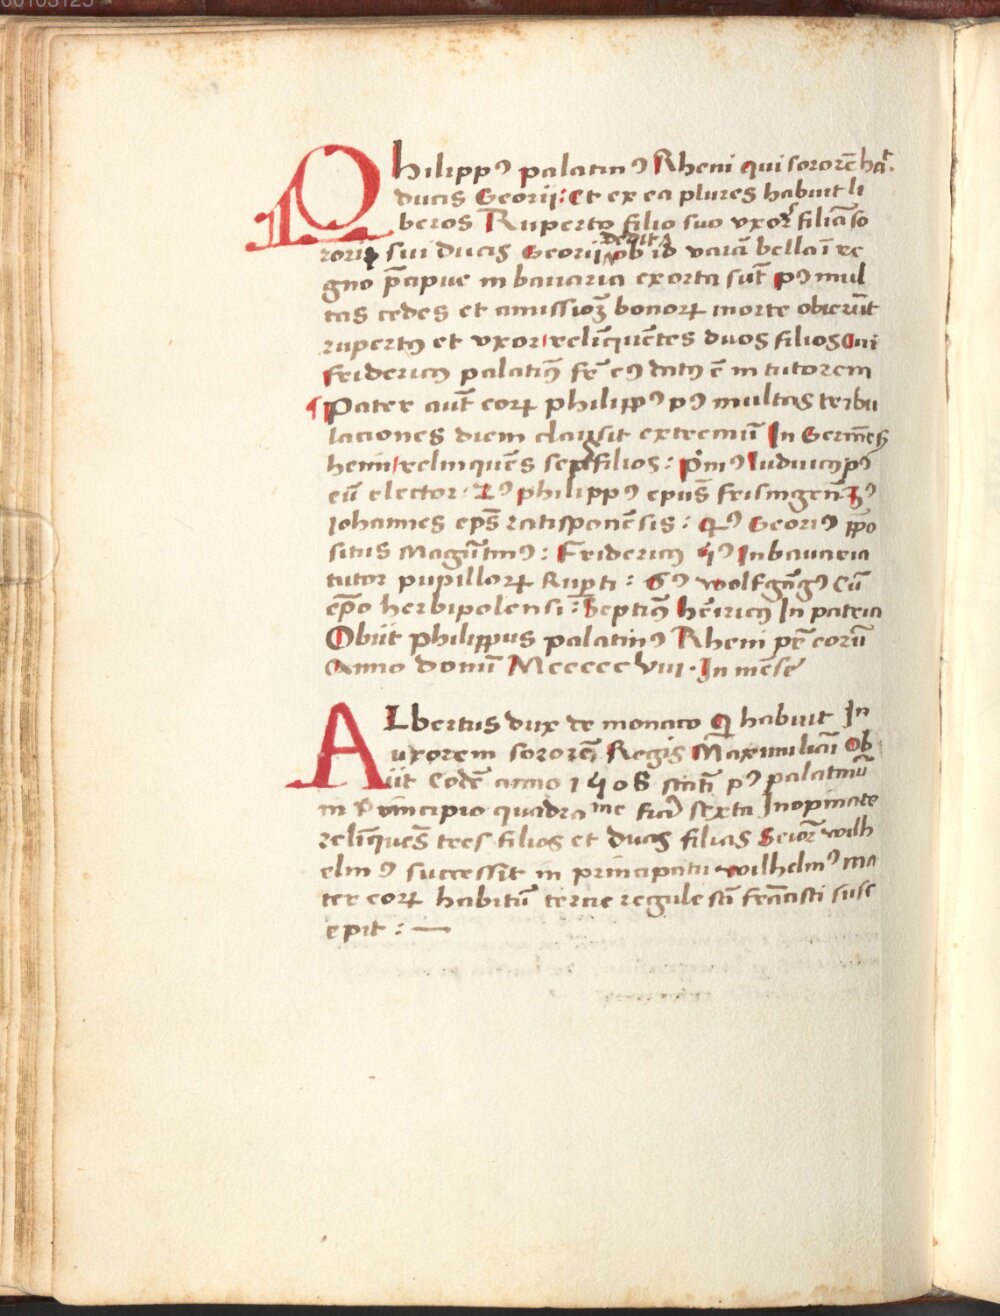 Philippꝰ palatinꝰ Rheni qui sororē hāt
ducis Georii: Et ex ea plures habuit li
beros Ruperto filio suo vxorē filiā so
roris sui ducis Georii dedit ob id varia bella ī re
gno p̄cipue in bauaria exorta sūt pꝰ mul
tas cedes et amissiōꝫ bonoꝝ morte obierūt
rupertꝰ et vxor relīquētes duos filios Qui
fridericꝰ palatinꝰ fr̄ eiꝰ datꝰ ē in tutorem
Pater aūt eoꝝ philippꝰ pꝰ multas terbu
laciones diem clausit extremū In Germes
heim relinquēs septē filios: Pimꝰ luduicꝰ pꝰ
eū elector: 2ꝰ philippꝰ ep̄us frisingen̄ 3ꝰ
Johannes ep̄s ratisponēsis: 4ꝰ Georiꝰ p̄po
situs Magūtinꝰ: Fridericꝰ 5ꝰ In bauaria
tutor pupilloꝝ Ruꝑti: 6ꝰ wolfgāgꝰ cū
ep̄o herbipolensi: Septimꝰ hēricꝰ In patria
Obiit philippus palatinꝰ Rheni pr̄ eorū
Anno domī Mccccc viii. In mēse
ALbertus dux de monaco q̄ habuit In
uxorem sororē Regis Maximiliani Ob
iit Eodē anno 1508 statī pꝰ palatinū
in Principio quadragme feria sexta Inopinate
relīquēs tres filios et duas filias Seiorē wilh
elmꝰ successit in principatu wilhelmꝰ ma
ter eoꝝ habitū tercie regule sc̄i frācisci susc
epit: —